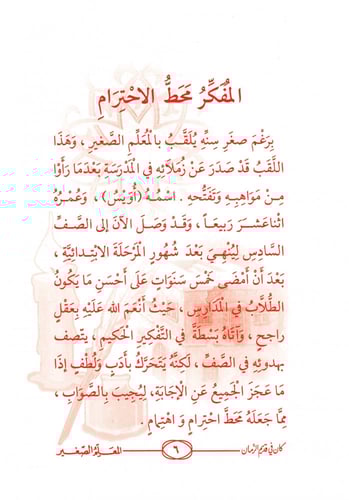 المُفَكِّرُ مَحَطُّ الاحْتِرَامِ
بِرَغْمِ صِغَرِ سِنِّهِ يُلَقَّبُ بِالْمُعَلِّمِ الصَّغِيرِ ، وَهَذَا
اللَّقَبُ قَدْ صَدَرَ عَنْ زُمَلَائِهِ فِي الْمَدْرَسَةِ بَعْدَمَا رَأَوْا
مِنْ مَوَاهِبِهِ وَتَفَتُّحِهِ . اسْمُهُ (أُوَيْسُ) ، وَعُمْرُهُ
اثْنَا عَشَرَ رَبِيعاً ، وَقَدْ وَصَلَ الآنَ إِلَى الصَّفِّ
السَّادِسِ لِيُنْهِيَ بَعْدَ شُهُورٍ الْمَرْحَلَةَ الابْتِدَائِيَّةَ ،
بَعْدَ أَنْ أَمْضَى خَمْسَ سَنَوَاتٍ عَلَى أَحْسَنِ مَا يَكُونُ
الطُّلَّابُ فِي الْمَدَارِسِ ، حَيْثُ أَنْعَمَ الله عَلَيْهِ بِعَقْلٍ
رَاجِحٍ ، وَآتَاهُ بَسْطَةً فِي التَّفْكِيرِ الْحَكِيمِ ، يَتَّصِفُ
بِهُدُوئِهِ فِي الصَّفِّ ، لَكِنَّهُ يَتَحَرَّكُ بِأَدَبٍ وَلُطْفٍ إِذَا
مَا عَجَزَ الْجَمِيعُ عَنِ الإِجَابَةِ، لِيُجِيبَ بِالصَّوَابِ ،
مِمَّا جَعَلَهُ مَحَطَّ احْتِرَامٍ وَ اهْتِمَامٍ .
كان في قديم الزمان ٦ المعلم الصغير